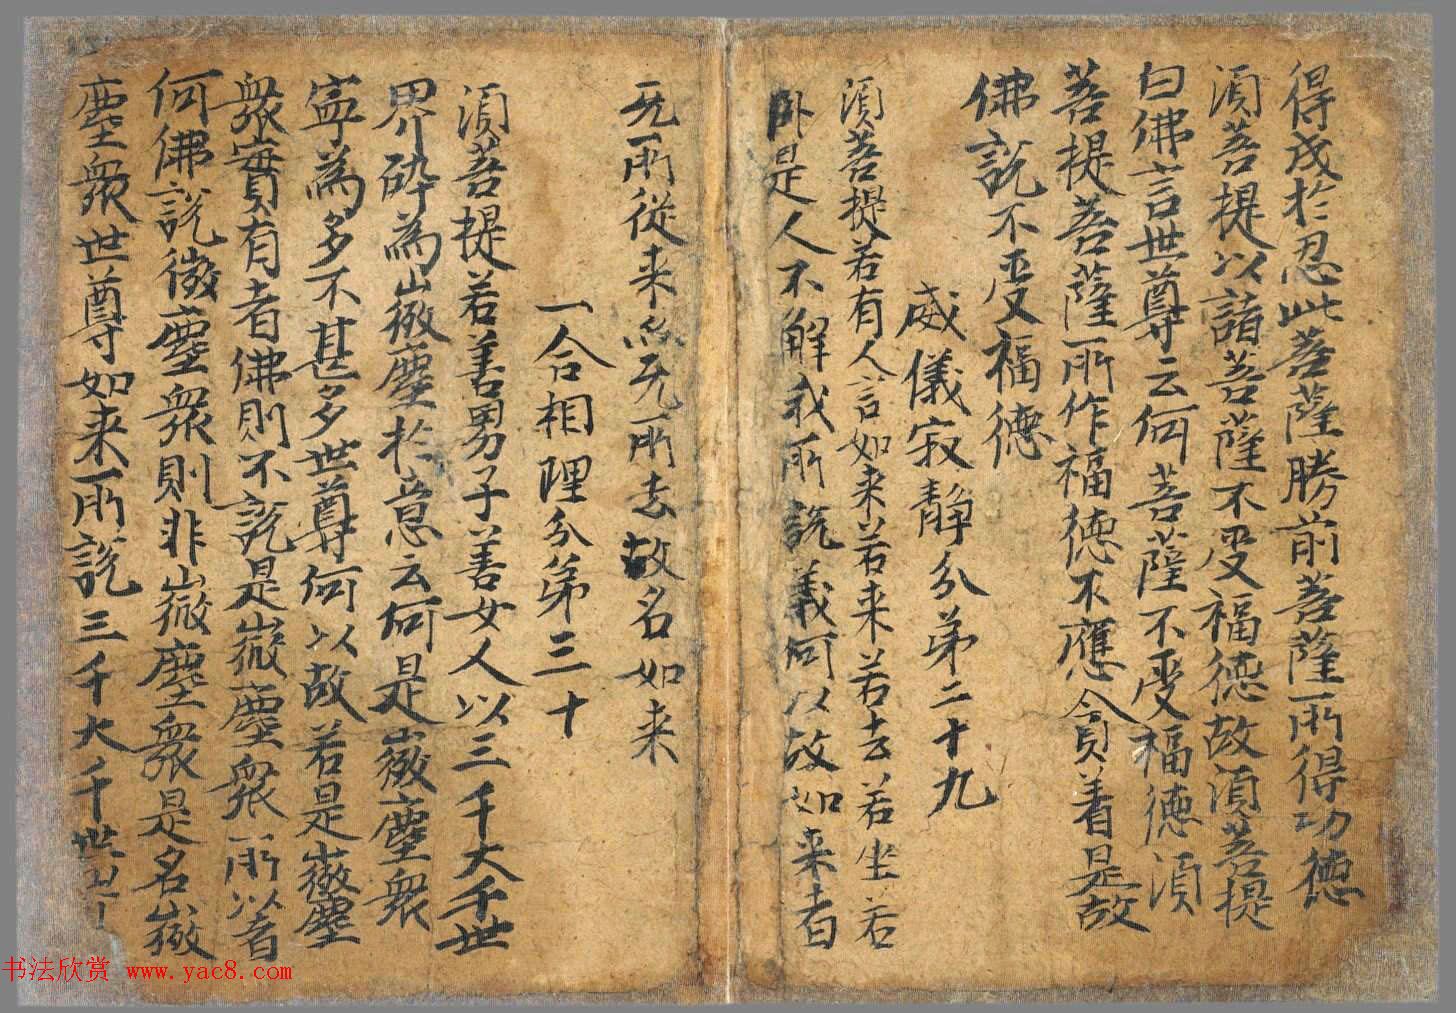 得成於忍此菩薩勝前菩薩所得功德
須菩提以諸菩薩不受福德故須菩提
白佛言世尊云何菩薩不受福德須
菩提菩薩所作福德不應貪着是故
佛說不受福德
威儀寂静分第二十九
須菩提若有人言如来若来若去若坐若
卧是人不解我所說義何以故如来者
无所從来亦无所去故名如来
一合相理分第三十
須菩提若善男子善女人以三千大千世
界碎為微塵於意云何是微塵衆
寧為多不甚多世尊何以故若是微塵
衆實有者佛則不說是微塵衆所以者
何佛說微塵衆則非微塵衆是名微
塵衆世尊如来所說三千大千世界
书法欣赏 www.yac8.com